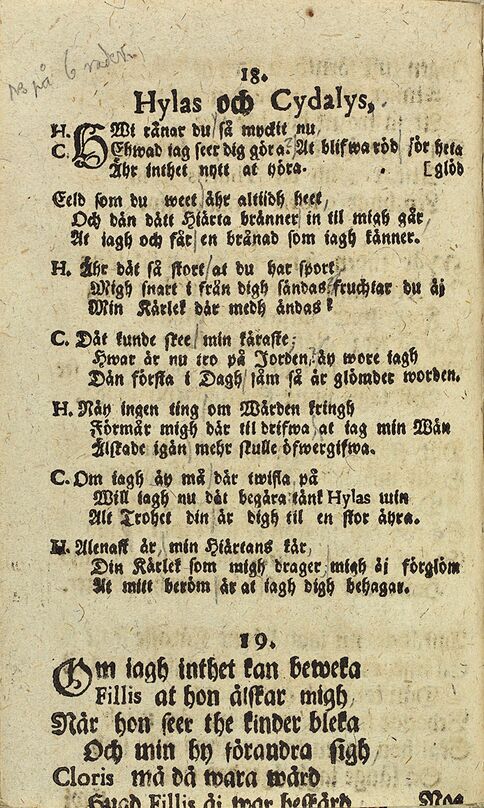 ns på 6 rader
18.
Hylas och Cydalys,
H. HWi rånar du så myckit nu,
C. Ehwad iag seer dig göra. At blifwa röd för heta
Ähr inthet nytt at höra. [glöd
Eeld som du weet ähr altiidh heet,
Och dän dätt Hiärta bränner in til migh går,
At iagh och får en brånad som iagh känner.
H. Ähr dät så stort at du har sport,
Migh snart i från digh sändas fruchtar du äj
Min Kärlek där medh ändas?
C. Dät kunde skee min käraste;
Hwar är nu tro på Jorden, äy wore iagh
Dän första i Dagh såm så är glömder worden.
H. Näy ingen ting om Wärden kringh
Förmår migh där til drifwa at iag min Wän
Älskade igän mehr skulle öfwergifwa.
C. Om iagh äy må där twifla på
Will iagh nu dät begära tänk Hylas min
Alt Trohet din är digh til en stor ähra.
H. Alenast är, min Hiärtans kär,
Din Kärlek som migh drager migh äj förglöm
At mitt beröm är at iagh digh behagar.
19.
Om iagh inthet kan beweka
Fillis at hon älskar migh,
När hon seer the kinder bleka
Och min hy förandra sigh,
Cloris må då wara wård
Hugd Fillis äj war beskärd
Nog